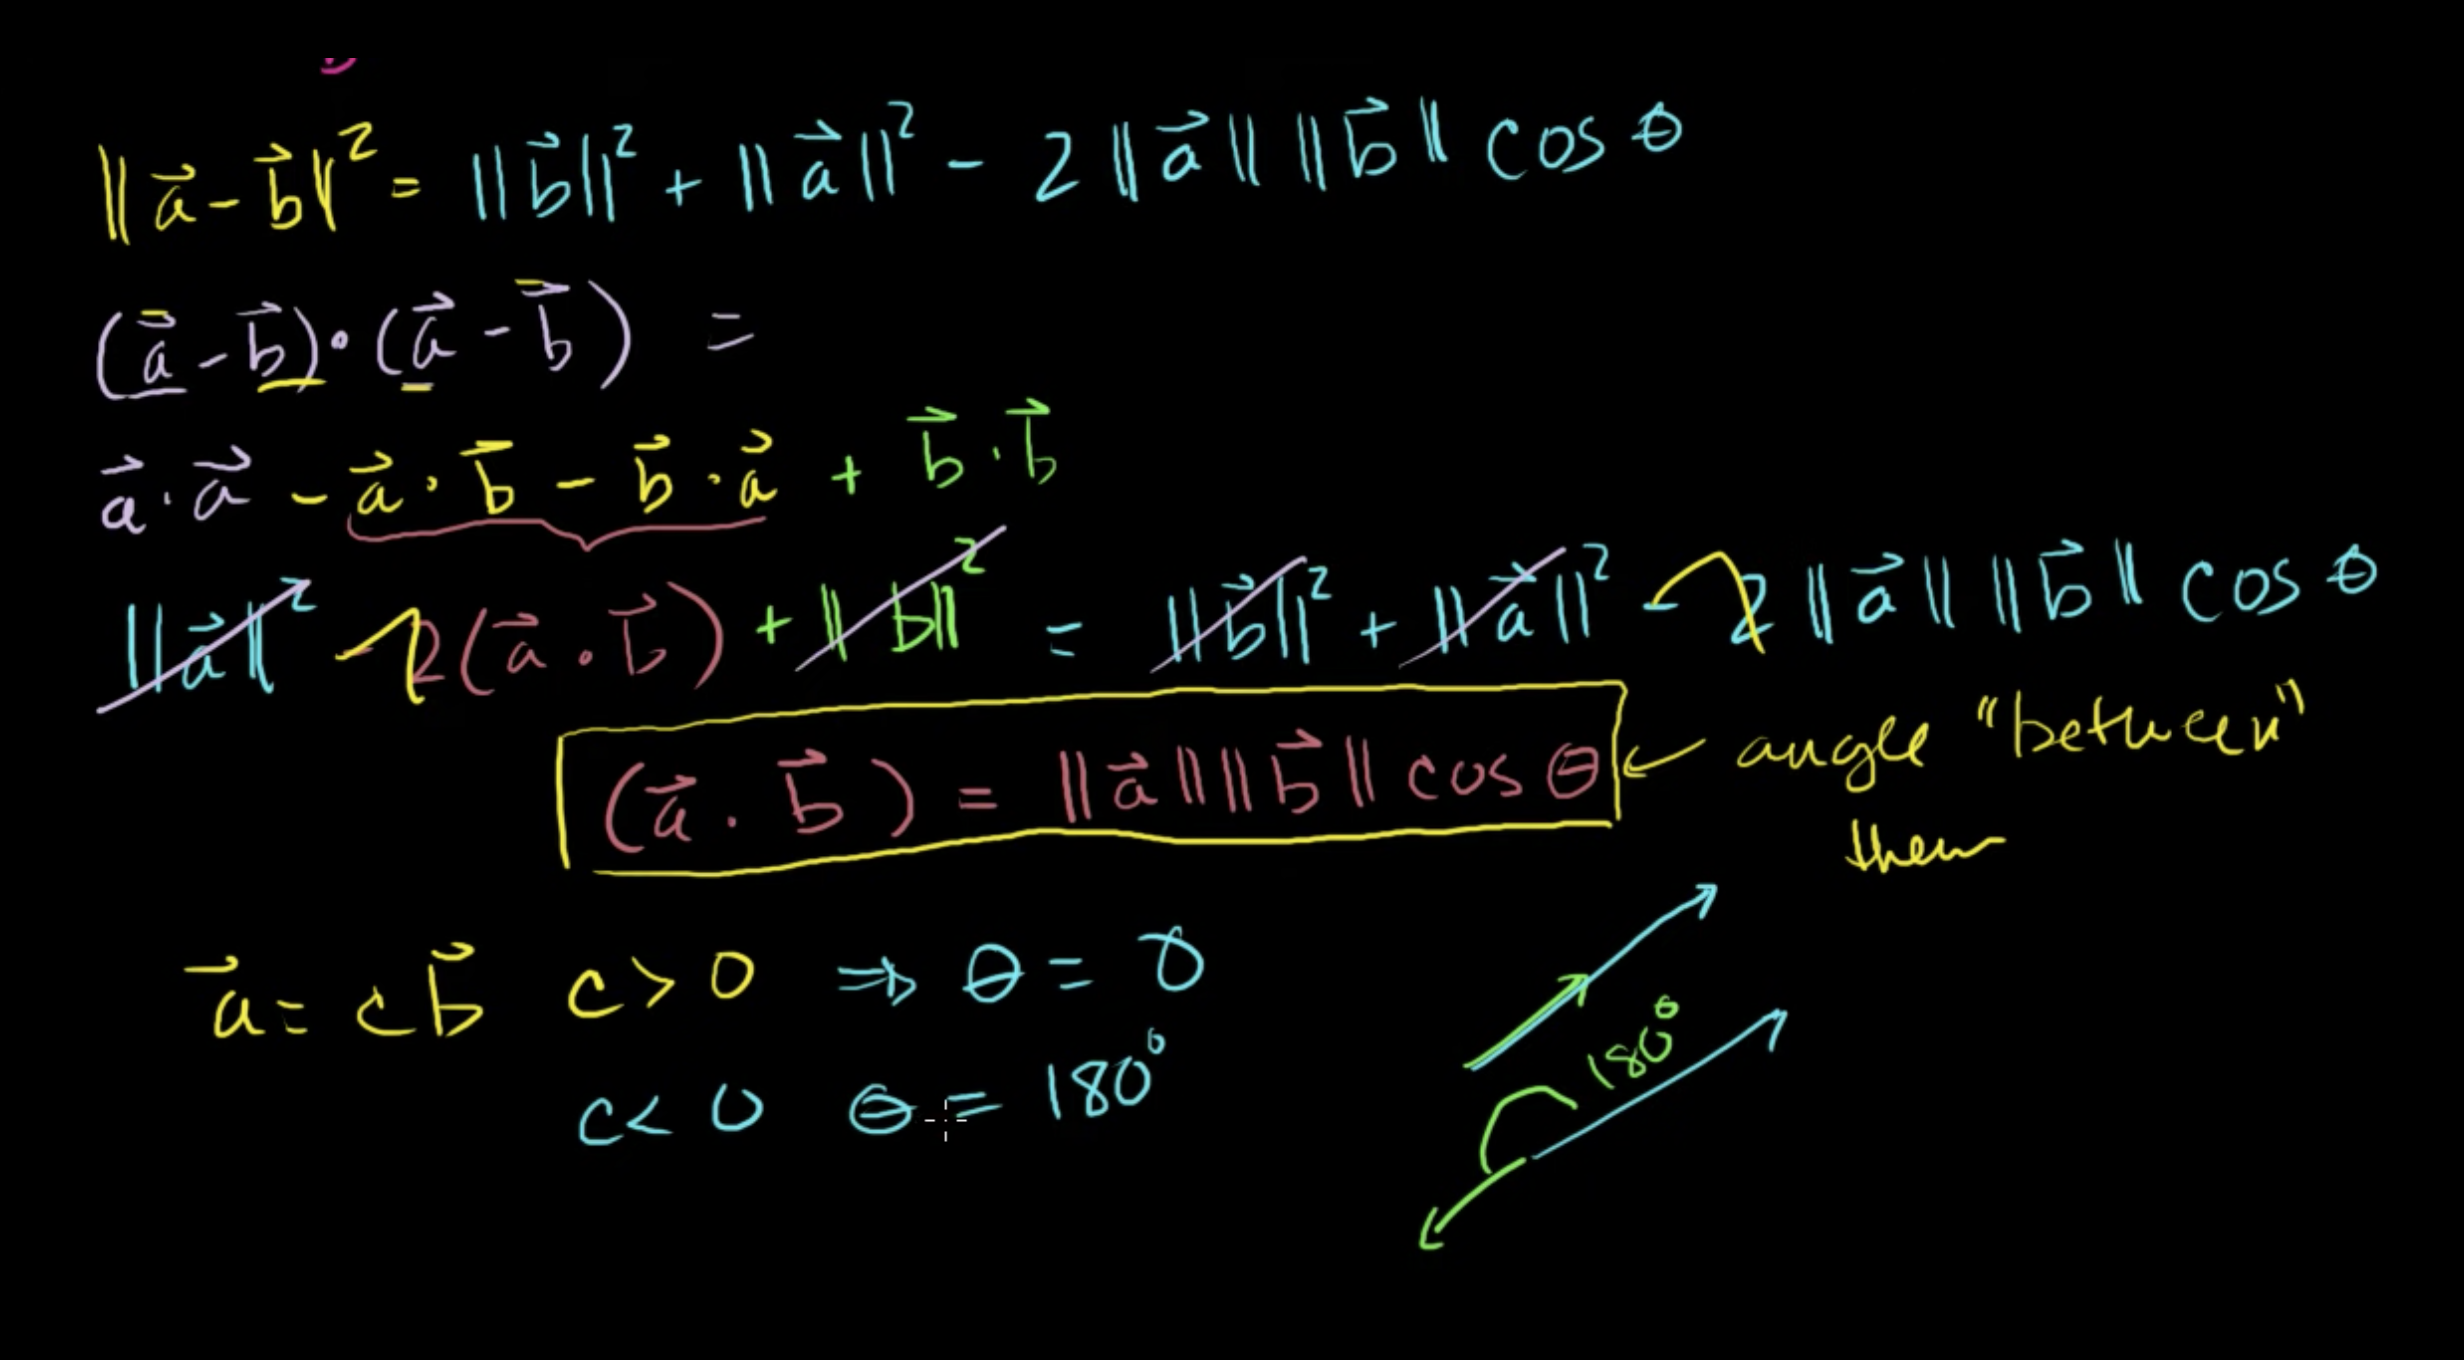 ‖a⃗ - b⃗‖² = ‖b⃗‖² + ‖a⃗‖² - 2 ‖a⃗‖ ‖b⃗‖ cos θ
(a⃗ - b⃗) · (a⃗ - b⃗) =
a⃗ · a⃗ - a⃗ · b⃗ - b⃗ · a⃗ + b⃗ · b⃗
‖a⃗‖² - 2(a⃗ · b⃗) + ‖b‖² = ‖b⃗‖² + ‖a⃗‖² - 2 ‖a⃗‖ ‖b⃗‖ cos θ
(a⃗ · b⃗) = ‖a⃗‖ ‖b⃗‖ cos θ ← angle "between"
them
a⃗ = c b⃗ c > 0 ⇒ θ = 0
c < 0 θ = 180°
180°